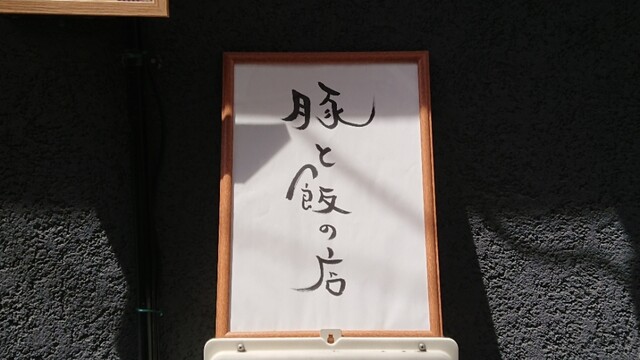 豚と飯の店